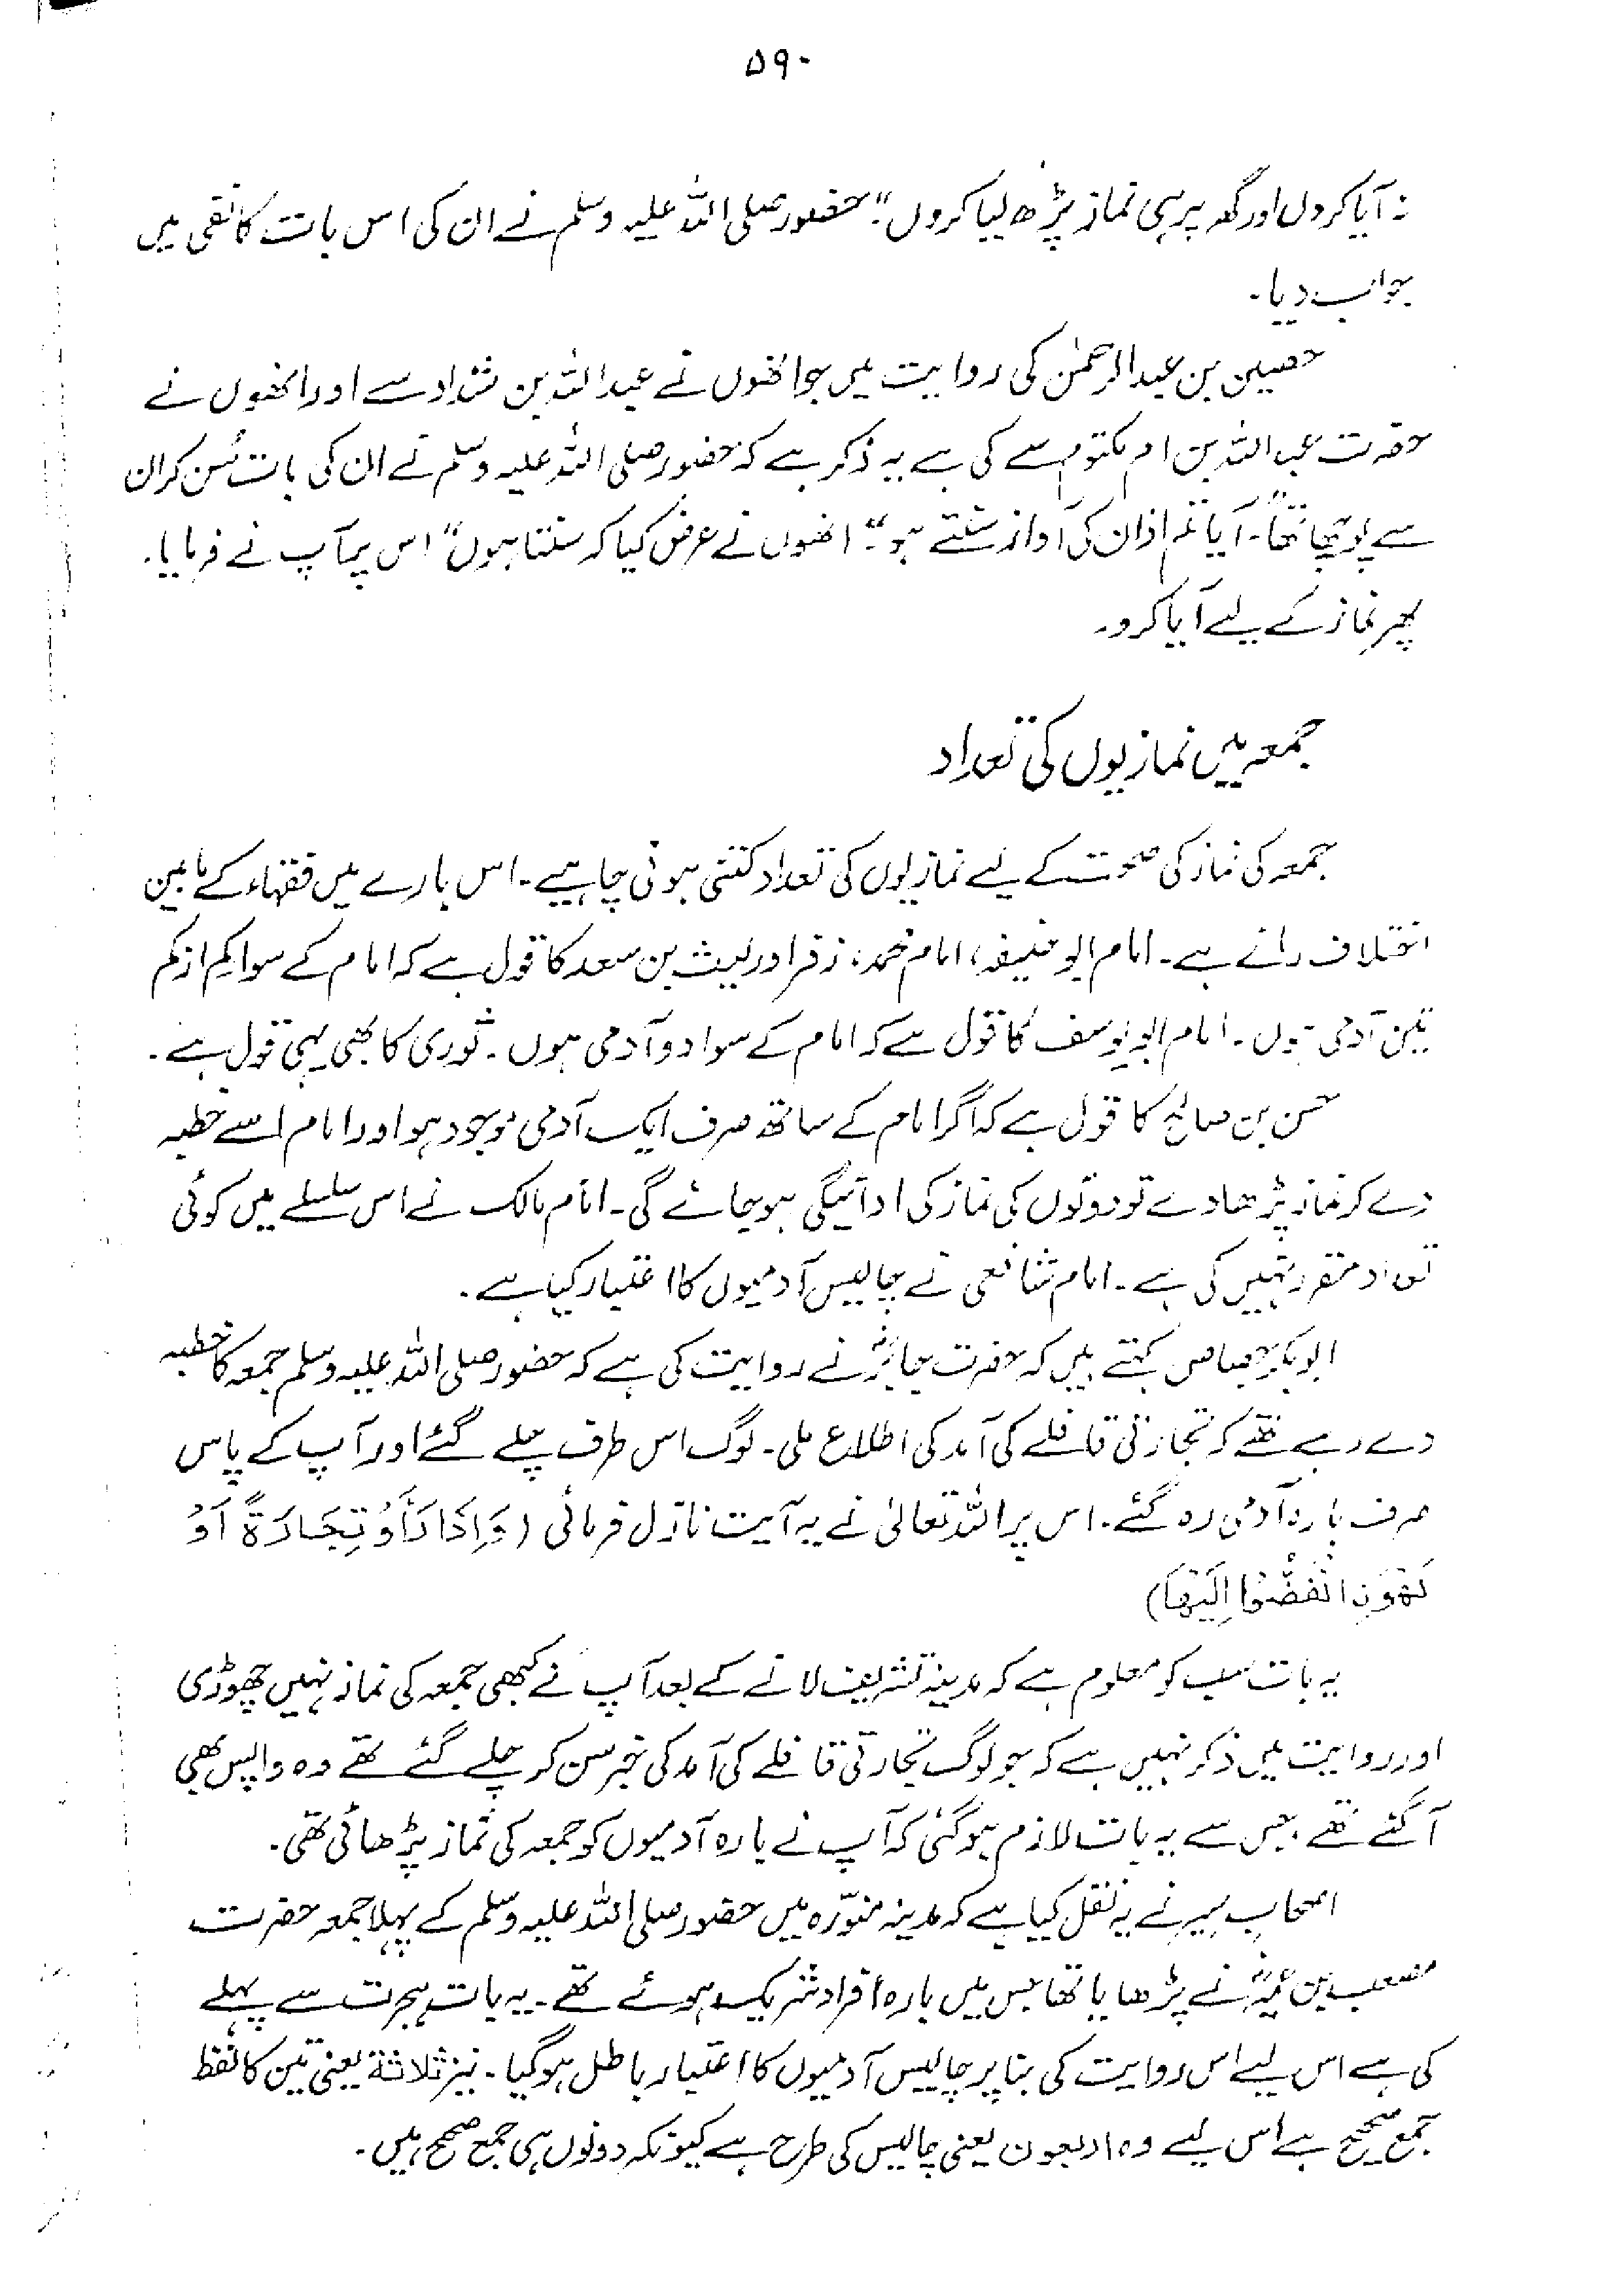 ۵۹۰
نہ آیا کروں اور گھر پر ہی نماز پڑھ لیا کروں"۔ حضور صلی اللہ علیہ وسلم نے ان کی اس بات کا نفی میں
جواب دیا۔
حصین بن عبدالرحمٰن کی روایت میں جو انھوں نے عبداللہ بن شداد سے اور انھوں نے
حضرت عبداللہ بن ام مکتومؓ سے کی ہے یہ ذکر ہے کہ حضور صلی اللہ علیہ وسلم نے ان کی بات سُن کر ان
سے پوچھا تھا۔ "آیا تم اذان کی آواز سنتے ہو"؟ انھوں نے عرض کیا کہ سنتا ہوں" اس پر آپ نے فرمایا۔
پھر نماز کے لیے آیا کرو۔
جمعہ میں نمازیوں کی تعداد
جمعہ کی نماز کی صحت کے لیے نمازیوں کی تعداد کتنی ہونی چاہیے۔ اس بارے میں فقہاء کے مابین
اختلاف رائے ہے۔ امام ابو حنیفہ، امام محمد، زفر اور لیث بن سعد کا قول ہے کہ امام کے سوا کم از کم
تین آدمی ہوں۔ امام ابو یوسف کا قول ہے کہ امام کے سوا دو آدمی ہوں۔ ثوری کا بھی یہی قول ہے۔
حسن بن صالح کا قول ہے کہ اگر امام کے ساتھ صرف ایک آدمی موجود ہو اور امام اسے خطبہ
دے کر نماز پڑھا دے تو دونوں کی نماز کی ادائیگی ہو جائے گی۔ امام مالک نے اس سلسلے میں کوئی
تعداد مقرر نہیں کی ہے۔ امام شافعی نے چالیس آدمیوں کا اعتبار کیا ہے۔
ابوبکر جصاص کہتے ہیں کہ حضرت جابرؓ نے روایت کی ہے کہ حضور صلی اللہ علیہ وسلم جمعہ کا خطبہ
دے رہے تھے کہ تجارتی قافلے کی آمد کی اطلاع ملی۔ لوگ اس طرف چلے گئے اور آپ کے پاس
صرف بارہ آدمی رہ گئے۔ اس پر اللہ تعالیٰ نے یہ آیت نازل فرمائی (وَاِذَا رَأَوْ تِجَارَةً اَوْ
لَهْوَنِ انْفَضُّوْا اِلَيْهَا)
یہ بات سب کو معلوم ہے کہ مدینہ تشریف لانے کے بعد آپ نے کبھی جمعہ کی نماز نہیں چھوڑی
اور روایت میں ذکر نہیں ہے کہ جو لوگ تجارتی قافلے کی آمد کی خبر سن کر چلے گئے تھے وہ واپس بھی
آگئے تھے، جس سے یہ بات لازم ہو گئی کہ آپ نے بارہ آدمیوں کو جمعہ کی نماز پڑھائی تھی۔
اصحابِ سِیَر نے یہ نقل کیا ہے کہ مدینہ منوّرہ میں حضور صلی اللہ علیہ وسلم کے پہلا جمعہ حضرت
مصعب بن عمیرؓ نے پڑھایا تھا جس میں بارہ افراد شریک ہوئے تھے۔ یہ بات ہجرت سے پہلے
کی ہے اس لیے اس روایت کی بنا پر چالیس آدمیوں کا اعتبار باطل ہو گیا۔ نیز ثلاثة یعنی تین کا لفظ
جمع صحیح ہے اس لیے وہ اربعون یعنی چالیس کی طرح ہے کیونکہ دونوں ہی جمع صحیح ہیں۔